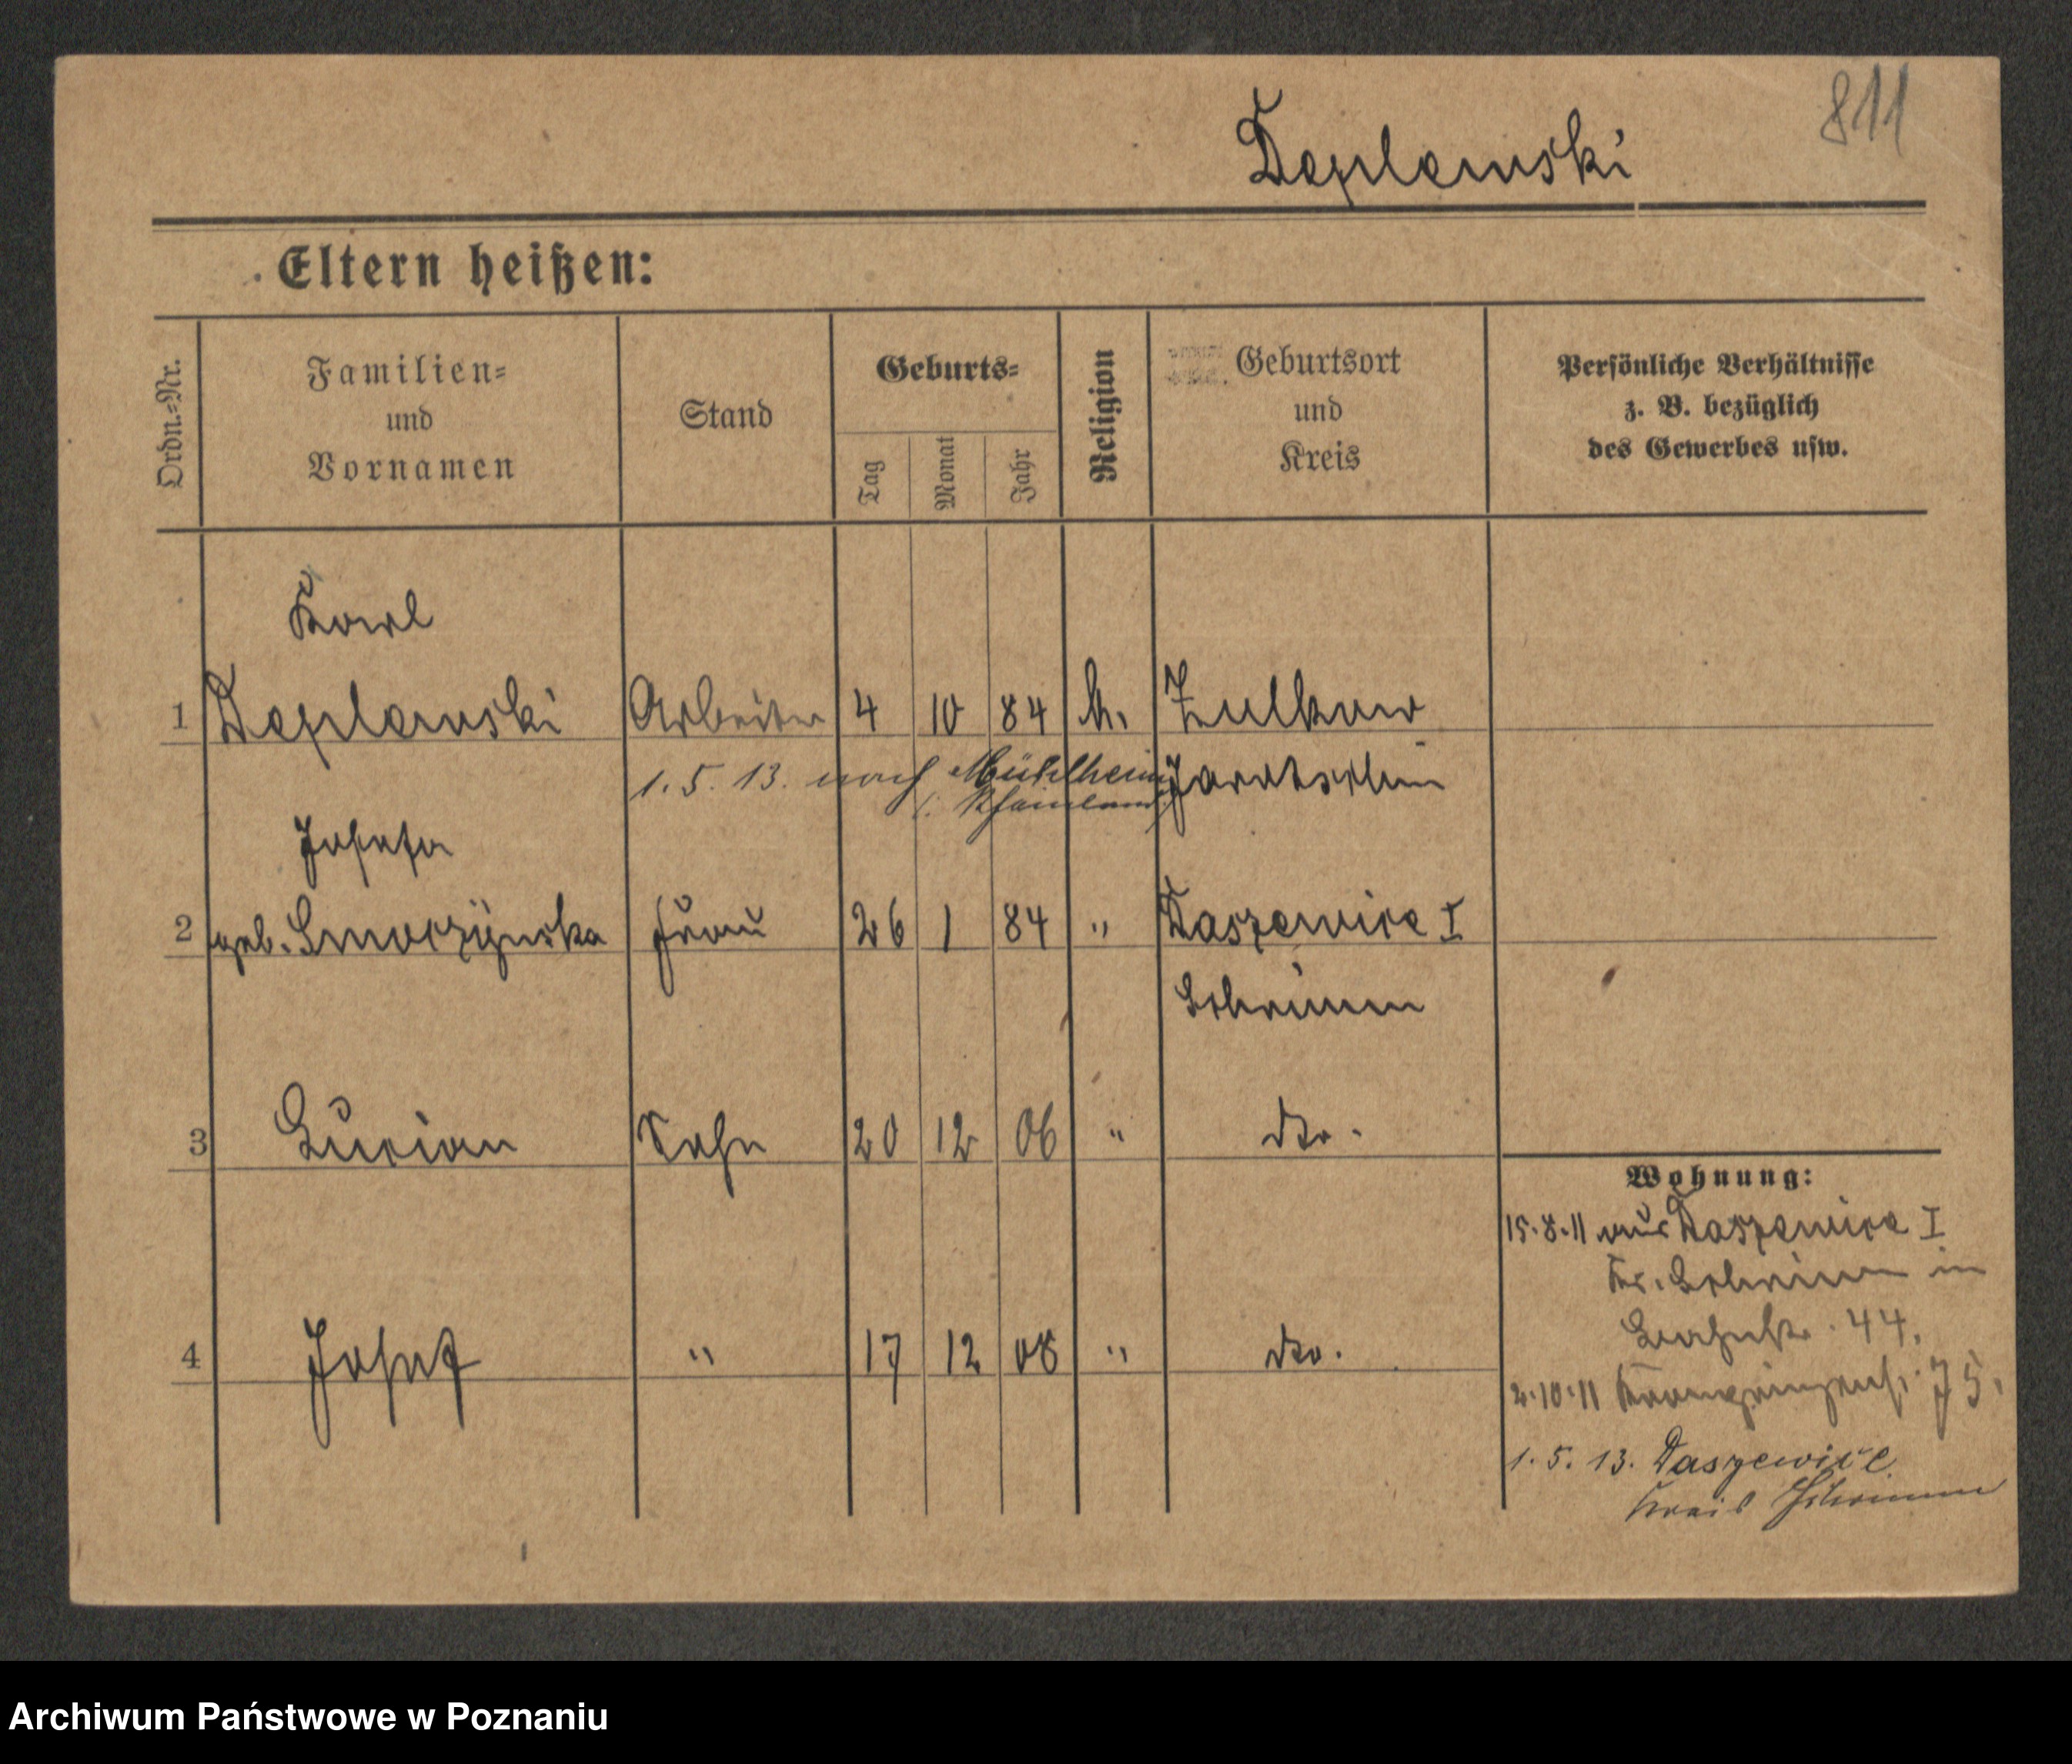 811
Deplewski
Eltern heißen:
Ordn.-Nr.
Familien-
und
Vornamen
Stand
Geburts-
Tag
Monat
Jahr
Religion
Geburtsort
und
Kreis
Persönliche Verhältnisse
z. B. bezüglich
des Gewerbes usw.
Karl
1 Deplewski Arbeiter 4 10 84 k. Zulkow
1. 5. 13. nach Mühlheim Jarotschin
i. Rheinland
Josefa
2 geb. Smoczÿnska Frau 26 1 84 " Daszewice I
Schrimm
3 Lucian Sohn 20 12 06 " dto.
4 Josef " 17 12 08 " dto.
Wohnung:
15.8.11 aus Daszewice I
Kr. Schrimm in
44.
2.10.11 Kronprinzenst. 75.
1. 5. 13. Daszewice
Kreis Schrimm
Archiwum Państwowe w Poznaniu